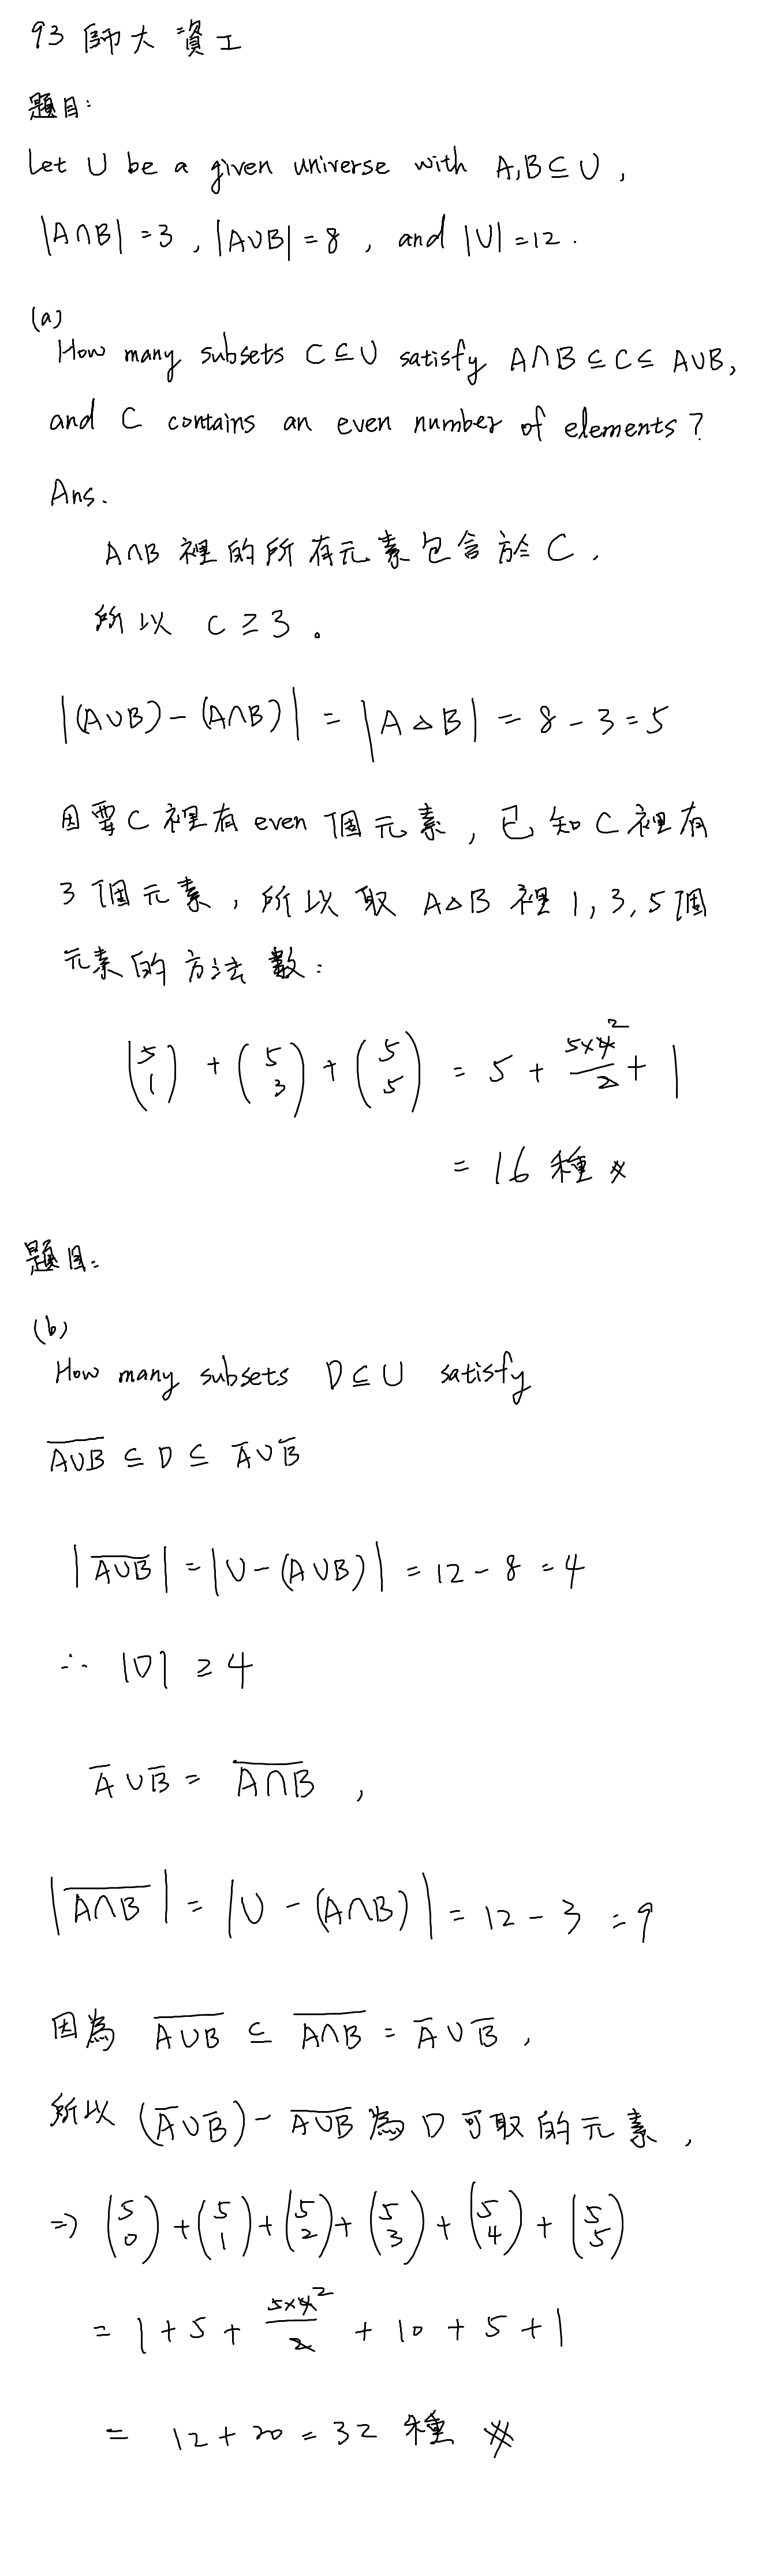 93 師大 資工
題目:
Let U be a given universe with A,B⊆U,
|A∩B| = 3, |A∪B| = 8, and |U| = 12.
(a)
How many subsets C⊆U satisfy A∩B⊆C⊆A∪B,
and C contains an even number of elements?
Ans.
A∩B 裡的所有元素包含於 C,
所以 C ≥ 3。
|(A∪B) - (A∩B)| = |A△B| = 8 - 3 = 5
因要 C 裡有 even 個元素, 已知 C 裡有
3 個元素, 所以取 A△B 裡 1, 3, 5 個
元素的方法數:
(5 1) + (5 3) + (5 5) = 5 + 5×4²/2 + 1
= 16 種 ※
題目:
(b)
How many subsets D⊆U satisfy
A̅∪̅B̅ ⊆ D ⊆ A̅ ∪ B̅
|A̅∪̅B̅| = |U - (A∪B)| = 12 - 8 = 4
∴ |D| ≥ 4
A̅ ∪ B̅ = A̅∩̅B̅,
|A̅∩̅B̅| = |U - (A∩B)| = 12 - 3 = 9
因為 A̅∪̅B̅ ⊆ A̅∩̅B̅ = A̅ ∪ B̅,
所以 (A̅ ∪ B̅) - A̅∪̅B̅ 為 D 可取的元素,
⇒ (5 0) + (5 1) + (5 2) + (5 3) + (5 4) + (5 5)
= 1 + 5 + 5×4²/2 + 10 + 5 + 1
= 12 + 20 = 32 種 ※